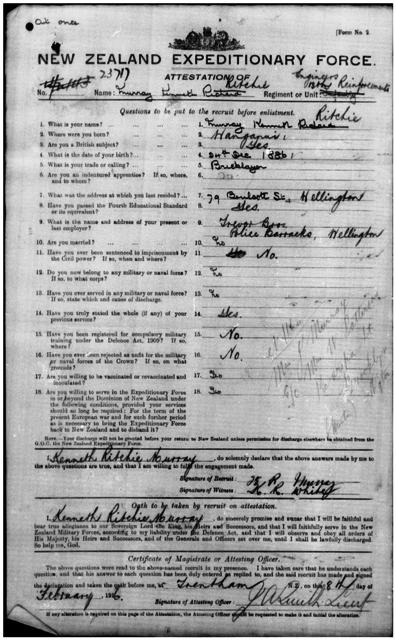 [Form No. 2.
NEW ZEALAND EXPEDITIONARY FORCE.
ATTESTATION OF
Engineers
23717 Ritchie Reinforcements
No. Name: Murray Kenneth Regiment or Unit:
Questions to be put to the recruit before enlistment.
Ritchie
1. What is your name? 1. Murray Kenneth
2. Where were you born? 2. Wanganui
3. Are you a British subject? 3. Yes
4. What is the date of your birth? 4. 24th Dec 1886
5. What is your trade or calling? 5. Bricklayer
6. Are you an indentured apprentice? If so, where, and to whom? 6.
7. What was the address at which you last resided? 7. 79 St., Wellington
8. Have you passed the Fourth Educational Standard or its equivalent? 8. Yes
9. What is the name and address of your present or last employer? 9. Trevor Bros
Police Barracks, Wellington
10. Are you married? 10. No
11. Have you ever been sentenced to imprisonment by the Civil power? If so, when and where? 11. No.
12. Do you now belong to any military or naval force? If so, to what corps? 12. No
13. Have you ever served in any military or naval force? If so, state which and cause of discharge. 13. No
14. Have you truly stated the whole (if any) of your previous service? 14. Yes.
15. Have you been registered for compulsory military training under the Defence Act, 1909? If so, where? 15. No.
16. Have you ever been rejected as unfit for the military or naval forces of the Crown? If so, on what grounds? 16. No.
17. Are you willing to be vaccinated or revaccinated and inoculated? 17. Yes
18. Are you willing to serve in the Expeditionary Force in or beyond the Dominion of New Zealand under the following conditions, provided your services should so long be required: For the term of the present European war and for such further period as is necessary to bring the Expeditionary Force back to New Zealand and to disband it? 18.
NOTE.—Your discharge will not be granted before your return to New Zealand unless permission for discharge elsewhere be obtained from the G.O.C. the New Zealand Expeditionary Force.
I, Kenneth Ritchie Murray, do solemnly declare that the above answers made by me to
the above questions are true, and that I am willing to fulfil the engagement made.
Signature of Recruit: K R Murray
Signature of Witness:
Oath to be taken by recruit on attestation.
I, Kenneth Ritchie Murray, do sincerely promise and swear that I will be faithful and
bear true allegiance to our Sovereign Lord the King, his Heirs and Successors, and that I will faithfully serve in the
New Zealand Military Forces, according to my liability under the Defence Act, and that I will observe and obey all orders of
His Majesty, his Heirs and Successors, and of the Generals and Officers set over me, until I shall be lawfully discharged.
So help me, God.
Certificate of Magistrate or Attesting Officer.
The above questions were read to the above-named recruit in my presence. I have taken care that he understands each
question, and that his answer to each question has been duly entered as replied to, and the said recruit has made and signed
the declaration and taken the oath before me, at Trentham N.Z., on this 8th day of
February 1916.
Signature of Attesting Officer: Lieut
If any alteration is required on this page of the Attestation, the Attesting Officer should be requested to make it and initial the alteration.